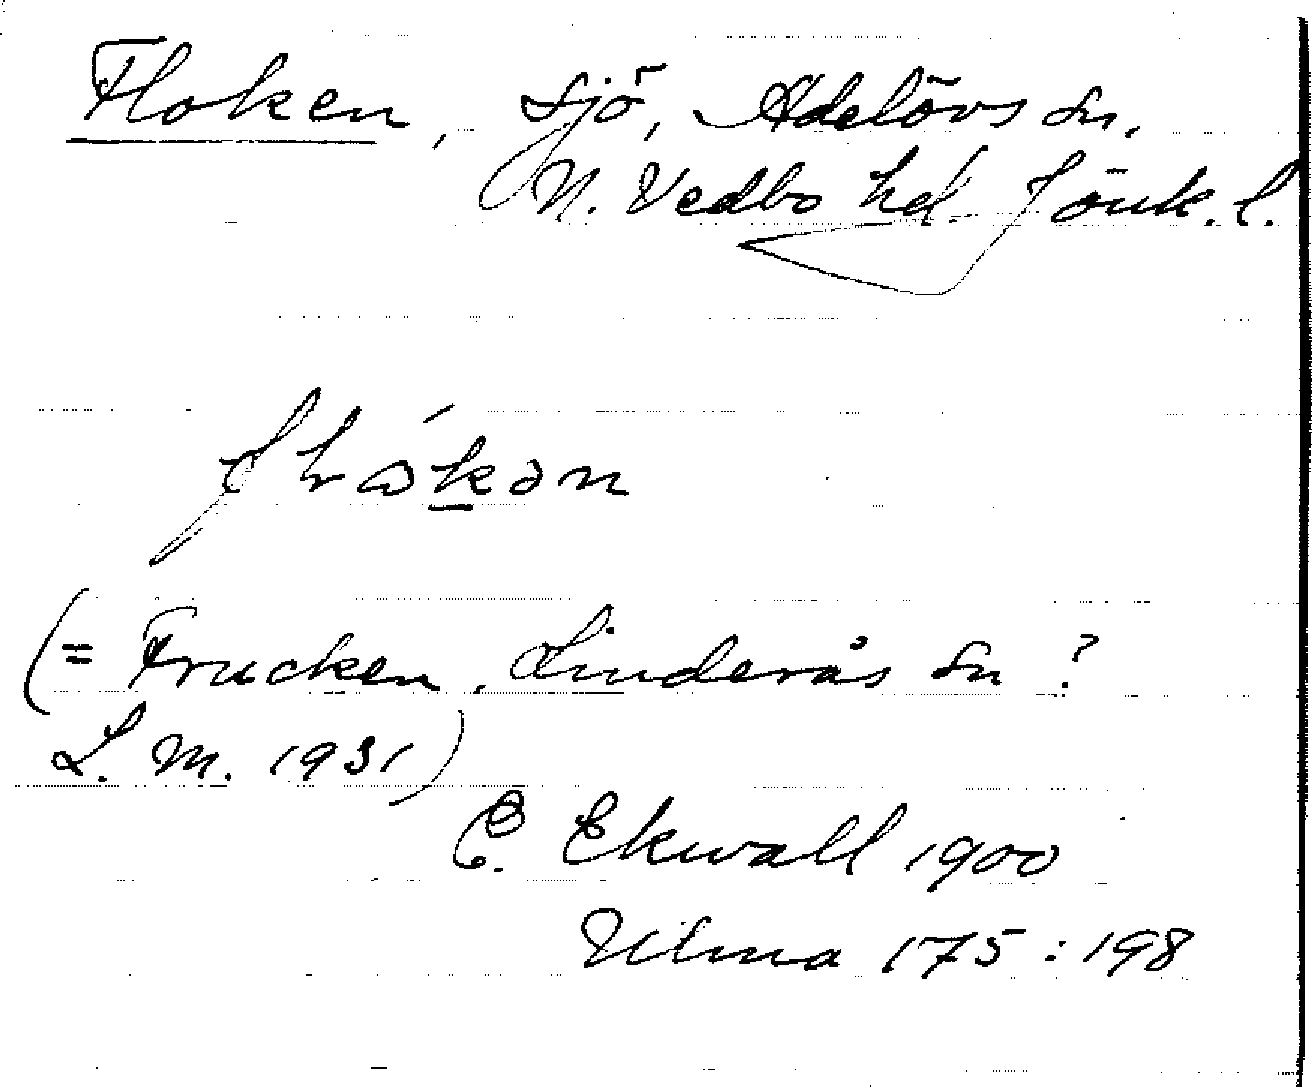 Floken, sjö, Adelövs sn,
N. Vedbo hd. Jönk. l.
(= Frucken, Linderås sn?
L. M. 1931)
E. Ekwall 1900
Ulma 175:198